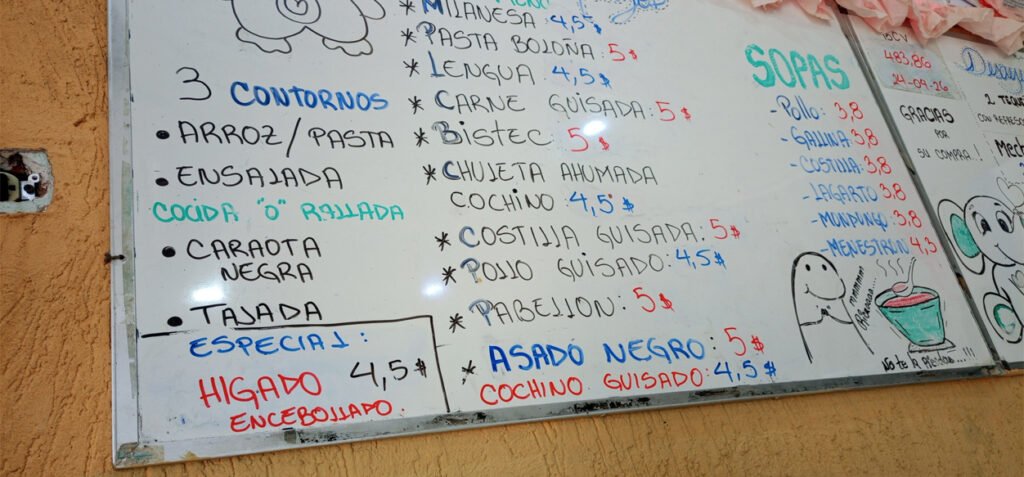 3 CONTORNOS
• ARROZ/PASTA
• ENSALADA
COCIDA "O" RALLADA
• CARAOTA
NEGRA
• TAJADA
ESPECIAL:
HIGADO 4,5$
ENCEBOLLADO.
* MILANESA 4,5$
* PASTA BOLOÑA: 5$
* LENGUA: 4,5$
* CARNE GUISADA: 5$
* BISTEC 5$
* CHULETA AHUMADA
COCHINO 4,5$
* COSTILLA GUISADA: 5$
* POLLO GUISADO: 4,5$
* PABELLON: 5$
* ASADO NEGRO: 5$
COCHINO GUISADO: 4,5$
SOPAS
- Pollo: 3,8
- GALLINA: 3,8
- COSTILLA: 3,8
- LAGARTO 3,8
- MONDONGO: 3,8
- MENESTRON 4,3
BCV
483,86
24-04-26
GRACIAS
POR
SU COMPRA..!
2 TEQUE
CON REFRESC
Mech